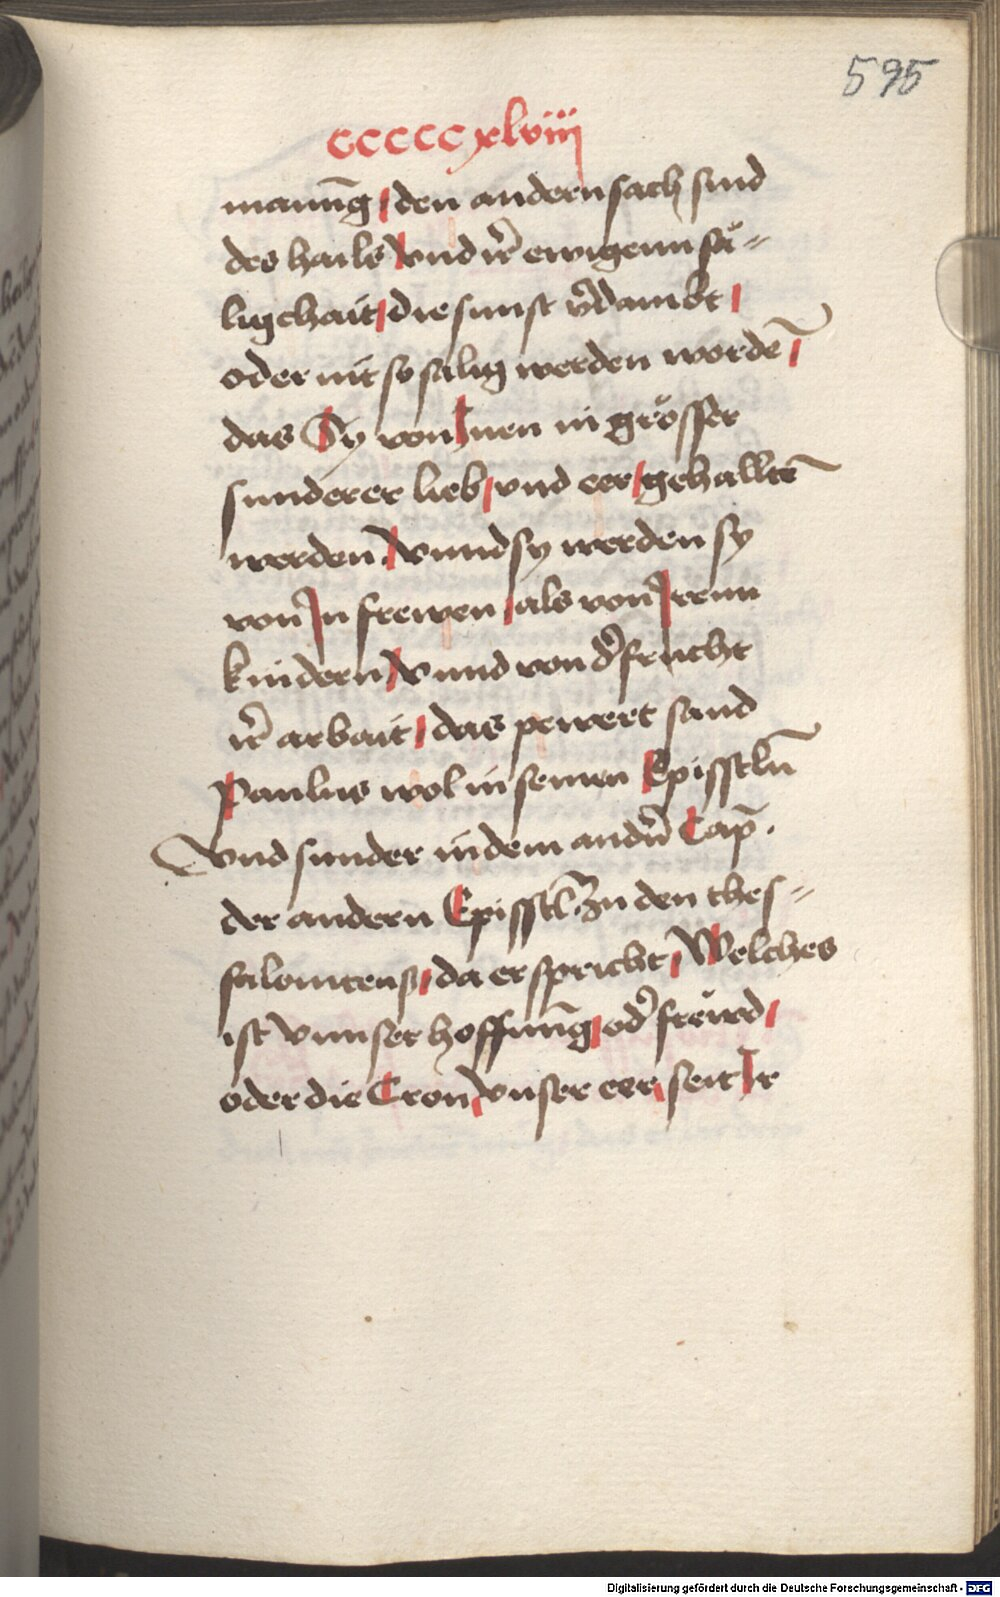 595
cccccxlviiij
manūg / den andern sach sind
des hails Vnd ir̄ ewigenn sä-
ligchait / die sunst v̄dambt /
oder nit so sälig werden wordē /
das Sy von Jnen in grösser
sunderer lieb / vnd eer / gehalltē
werden / Vnnd sy werden sy
von Jn frewen / als von Jrenn
kindern / Vnnd von d̄ frucht
ir̄ arbait / das pewert sand
Paulus wol in seinen Episstln̄
Vnd sunder in dem andn̄ Cap̄.
der andern Episstl̄ zu den thes-
salonicenß / da er spricht / Welches
ist Vnnser hoffnūg / od̄ frewd /
oder die Cron / Vnser eer / seit Jr
Digitalisierung gefördert durch die Deutsche Forschungsgemeinschaft - DFG